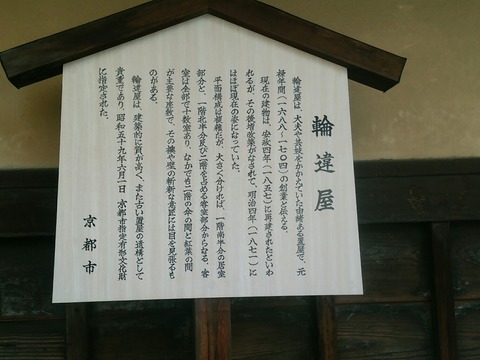 輪違屋
輪違屋は、太夫や芸妓をかかえていた由緒ある置屋で、元
禄年間（一六八八－一七〇四）の創業と伝える。
現在の建物は、安政四年（一八五七）に再建されたといわ
れるが、その後増改築がなされて、明治四年（一八七一）に
はほぼ現在の姿になっていた。
平面構成は複雑だが、大きく分ければ、一階南半分の居室
部分と、一階北半分及び二階を占める客室部分からなる。客
室は全部で十数室あり、なかでも二階の傘の間と紅葉の間
が主要な座敷で、その襖や壁の斬新な意匠には目を見張るも
のがある。
輪違屋は、建築的に質が高く、また古い置屋の遺構として
貴重であり、昭和五十九年六月二日　京都市指定有形文化財
に指定された。
京都市